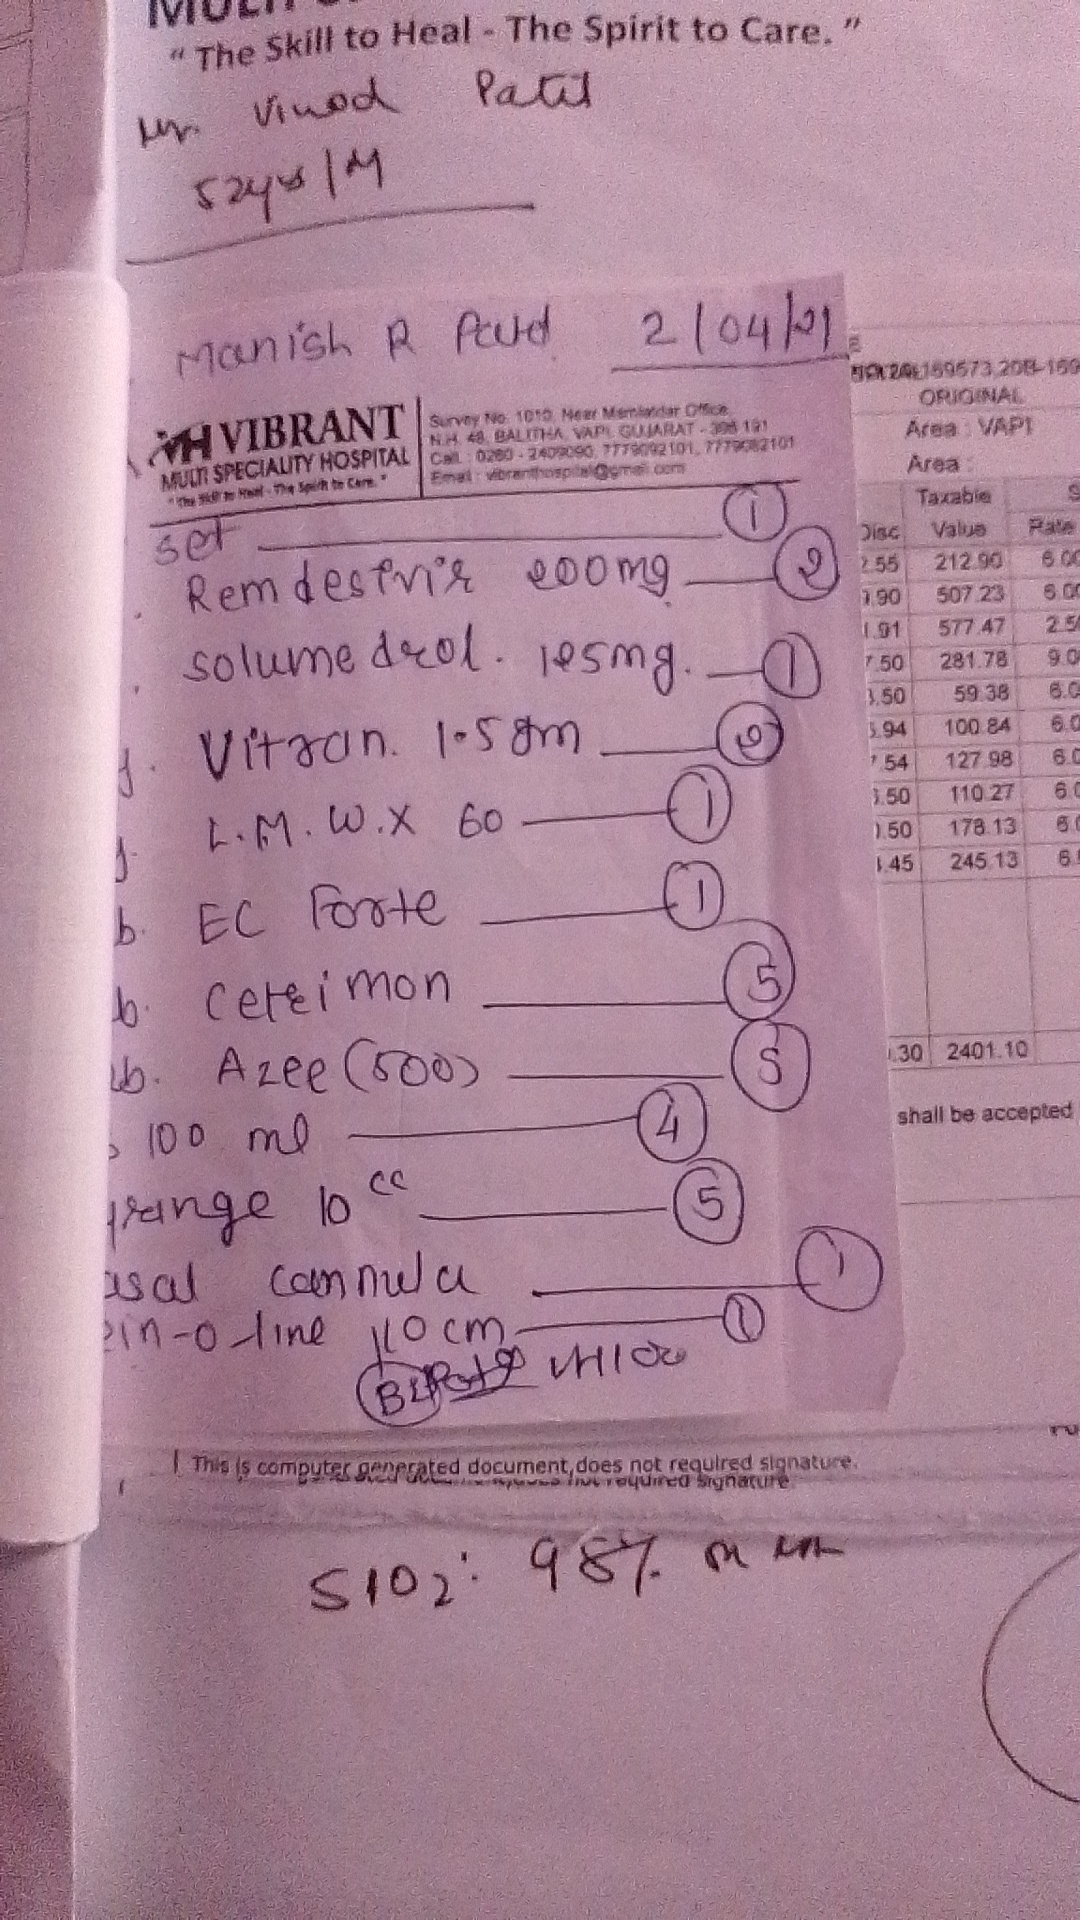 " The Skill to Heal - The Spirit to Care. "
Mr. Vinod Patil
52yrs/M
Manish R Patil 2/04/21
VH VIBRANT
MULTI SPECIALITY HOSPITAL
" The Skill to Heal - The Spirit to Care. "
Survey No. 1010, Near Mamlatdar Office,
N.H. 48, BALITHA, VAPI, GUJARAT - 396 191
Call : 0260 - 2409090, 7779092101, 7779082101
Email : vibranthospital@gmail.com
set 1
Remdesivir 200mg 2
solumedrol. 125mg. 1
Vitran. 1.5gm 2
L.M.W.X 60 1
b. EC Forte 1
b. Ceteimon 5
ab. Azee (500) 5
100 ml 4
yrange 10 cc 5
asal cannula 1
ein-o-line 110 cm 1
ORIGINAL
Area : VAPI
Area :
Disc Taxable Value Rate
2.55 212.90 6.00
507.23 6.00
577.47 2.5
7.50 281.78 9.0
59.38 6.0
100.84 6.0
7.54 127.98 6.0
110.27 6.0
178.13 6.0
245.13 6.
.30 2401.10
shall be accepted
This is computer generated document,does not required signature.
S1O2: 98%